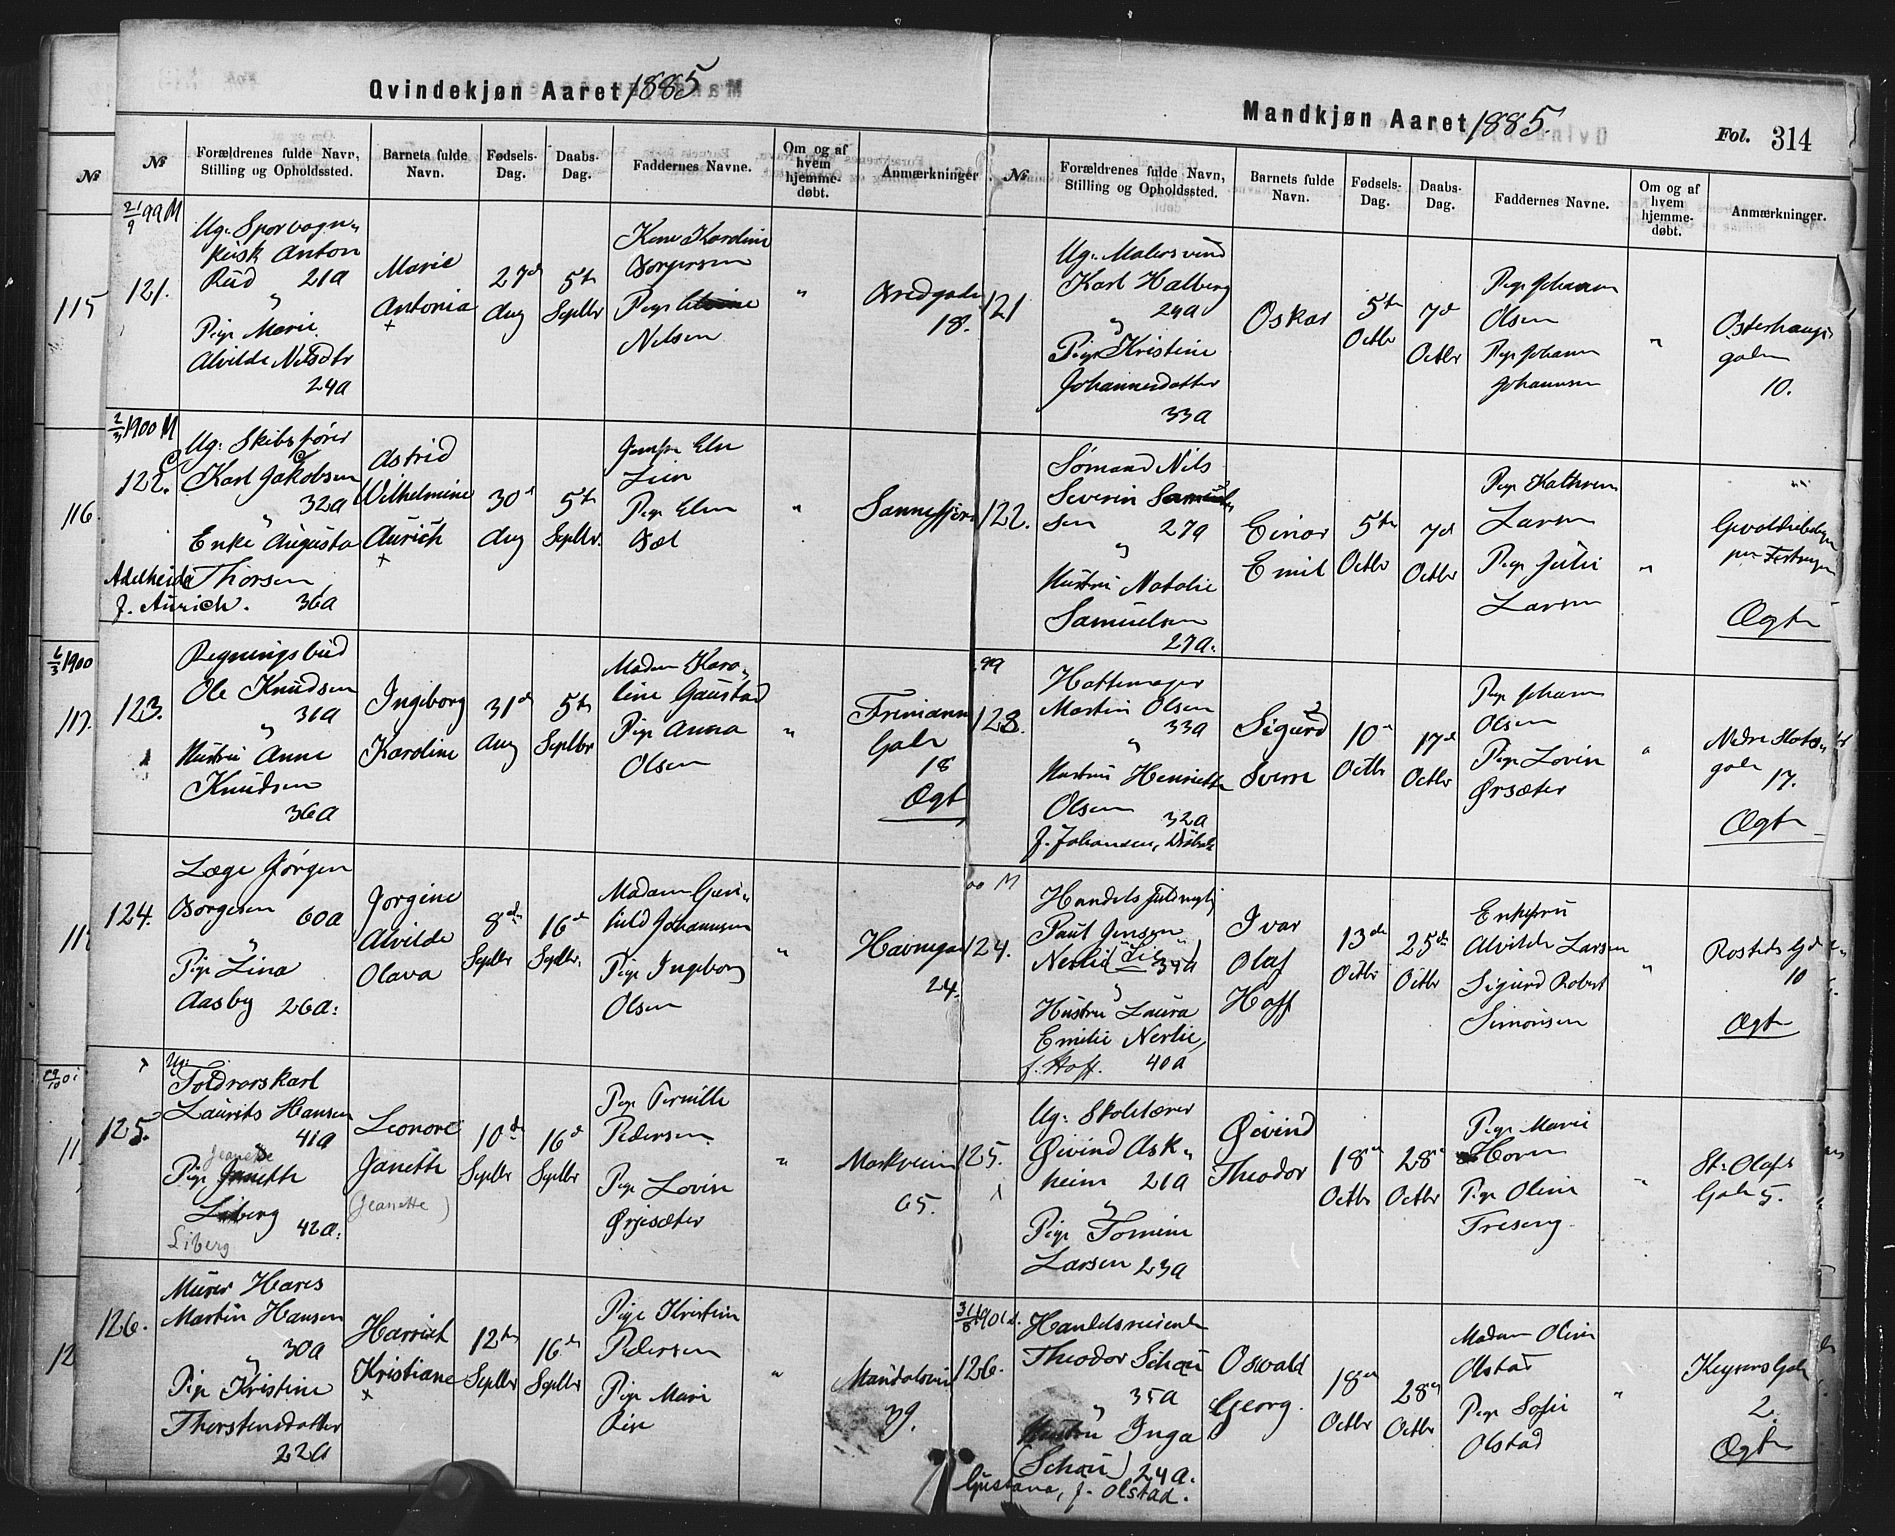 Qvindekjøn Aaret 1885
№
Forældrenes fulde Navn,
Stilling og Opholdssted.
Barnets fulde
Navn.
Fødsels-
Dag.
Daabs-
Dag.
Faddernes Navne.
Om og af
hvem
hjemme-
døbt.
Anmærkninger
№
115
116
117.
21/9 99 M
121.
Ug: Sporvogn-
kusk Anton
Rud 21a
"
Pige Marie
Alvilde Nilsdtr
24a
Marie
Antonia
+
27d
Aug
5te
Septbr
Kone Karoline
Nilsen
"
Bredgade
18.
2/3 1900 M
122.
Ug: Skibsfører
Karl Jakobsen
32a
"
Enke Augusta
Adelheide Thorsen
f. Aurich. 36a
Astrid
Wilhelmine
Aurich
+
30d
Aug
5te
Septbr.
Lien
Pige Elen
"
6/3 1900
123.
Regningsbud
Ole Knudsen
31a
"
Hustru Anne
Knudsen
36a
Ingeborg
Karoline
31d
Aug
5te
Septbr
Madam Karo-
line Gaustad
Pige Anna
Olsen
"
Frimanns
Gade
18
Ægte
124.
Læge Jørgen
Borgesen 60a
"
Pige Lina
Aasby 26a:
Jorgine
Alvilde
Olava
8de
Septbr
16d
Septbr.
Madam Gun-
hild Johannesen
Pige Ingeborg
Olsen
"
Havnegad
24.
125.
Ug:
Toldrorskarl
Laurits Hansen
41a
Jeanette
Pige Janette
Liberg
42a:
Liberg
Leonore
Janette
(Jeanette)
10de
Septbr
16d
Septbr
Pige Pernille
Pedersen
Pige Lovise
Ørjesæter
"
Markveien
65.
126.
Murer Hans
Martin Hansen
30a
"
Pige Kristine
Thorstensdatter
22a
Harriet
Kristiane
+
12te
Septbr
16de
Septbr
Pige Kristine
Pedersen
Pige Mari
"
Mandalsvei
39.
Mandkjøn Aaret 1885.
Fol. 314
№
Forældrenes fulde Navn,
Stilling og Opholdssted.
Barnets fulde
Navn.
Fødsels-
Dag.
Daabs-
Dag.
Faddernes Navne.
Om og af
hvem
hjemme-
døbt.
Anmærkninger.
121
Ug: Malersvend
Karl Halberg
24a
"
Pige Kristine
Johannesdatter
33a
Oskar
5te
Octbr
7d
Octbr
Pige Johanne
Olsen
Pige Johanne
Johannesen
"
Osterhaugs-
gaden
10.
122.
Sømand Nils
Severin Samuel-
sen 27a
"
Hustru Natalie
Samuelsen
27a.
Einar
Emil
5te
Octbr
7d
Octbr
Pige Kathrine
Larsen
Pige Julie
Larsen
"
Ægte
99
123.
Hattemager
Martin Olsen
33a
"
Hustru Henriette
Olsen 32a
f. Johansen,
Sigurd
Sverre
10d
Octbr
17d
Octbr
Pige Johanne
Olsen
Pige Lovise
Ørsæter
"
Nedre Slots-
gade 17.
Ægte
00 M
124.
Handelsfuldmægtig
Paul Jensen
Nerlie 39a
"
Hustru Laura
Emilie Nerlie,
f. Hoff. 40a
Ivar
Olaf
Hoff
13de
Octbr
25de
Octbr
Enkefru
Alvilde Larsen
Sigurd Robert
Simonsen
"
Rosteds Gd
10
Ægte
125.
Ug: Skolelærer
Øivind Ask-
heim 21a
"
Pige Tomine
Larsen 23a
Øivind
Theodor
18d
Octbr
28d
Octbr
Pige Marie
Horn
Pige Oline
"
St: Olafs
Gade 5.
126.
Handelsreisende
Theodor Schou
35a
"
Hustru Inga
(Schou) 24a.
Gustava, f. Olstad.
Oswald
Georg.
18d
Octbr
28d
Octbr
Madam Oline
Olstad
Pige Sofie
Olstad
"
Keysers Gade
2.
Ægte